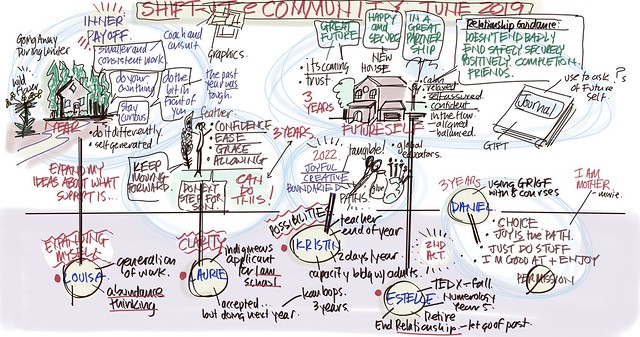 SHIFT-IT COMMUNITY JUNE 2019
INNER
PAYOFF.
Going Away
During Winter
smaller and
consistent work
Coach and
consult
graphics.
Wild
Flower
do your
own thing
do the
bit in
front of
you
the past
year was
tough.
stay
curious
1 YEAR
• do it differently.
• self generated
feather
• CONFIDENCE
EASE
GRACE
ALLOWING
3 YEARS.
KEEP
MOVING
FORWARD.
EXPAND MY
IDEAS ABOUT WHAT
SUPPORT IS...
DO NEXT
STEP FOR
SON.
CAN DO
THIS!
GREAT
FUTURE
HAPPY
AND
SECURE
IN A
GREAT
PARTNER
SHIP
• its coming
• trust
NEW
HOUSE
3
YEARS
FUTURE SELF
• calm
• relaxed
• self assured
• confident
• in the flow
- aligned
- balanced.
Relationship Guidance:
DOESN'T END BADLY
END SAFELY, SECURELY
POSITIVELY. COMPLETION.
FRIENDS.
use to ask ?s
of Future
Self.
Journal
GIFT
2022
JOYFUL
CREATIVE
BOUNDARIED
tangible!
PATHS.
Glue
• global
educators.
3 YEARS
DANIEL
using GRIGF
with 8 courses
I AM
MOTHER
- movie.
• CHOICE
• JOY is the PATH.
• JUST DO STUFF
• I'M GOOD AT + ENJOY
PERMISSION
EXPANDING
MYSELF
LOUISA
generation
of work.
abundance
thinking
CLARITY
LAURIE
indigenous
applicant
for law
school
accepted...
but doing next year.
POSSIBILITIES
KRISTIN
teacher
end of year
2 days/year
capacity bldg w/ adults.
Kamloops.
3 years.
2ND
ACT.
ESTELLE
TEDX-fall.
Numerology
years.
Retire
End Relationship - let go of past.